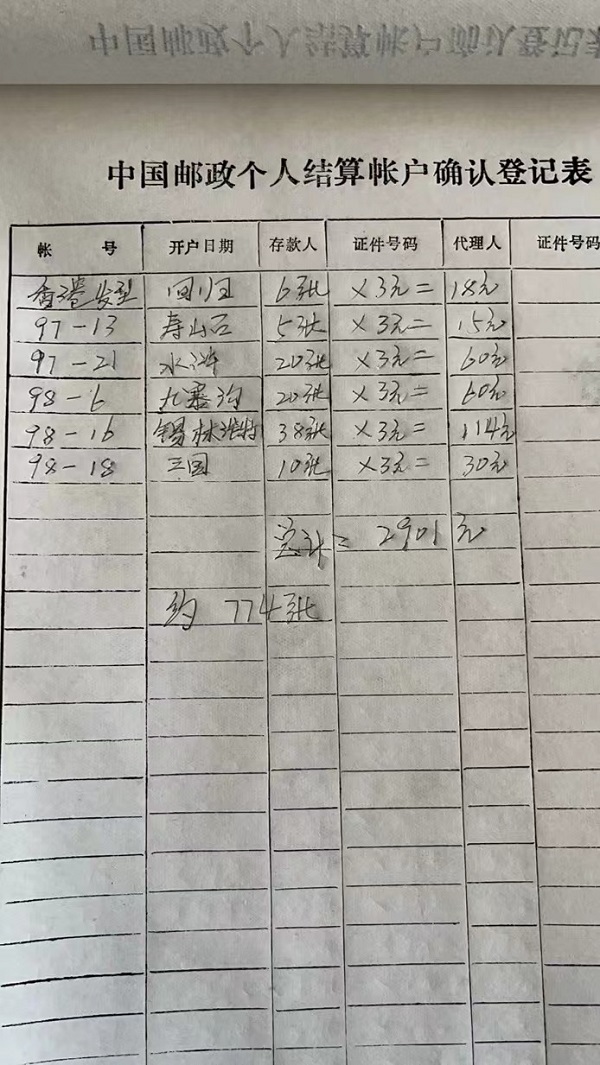 中国邮政个人结算帐户确认登记表
中国邮政个人结算帐户确认登记表
帐 号 开户日期 存款人 证件号码 代理人 证件号码
香港发型 回归 6张 ×3元= 18元
97-13 寿山石 5张 ×3元= 15元
97-21 水浒 20张 ×3元= 60元
98-6 九寨沟 20张 ×3元= 60元
98-16 锡林 38张 ×3元= 114元
98-18 三国 10张 ×3元= 30元
总计= 2901元
约 774张